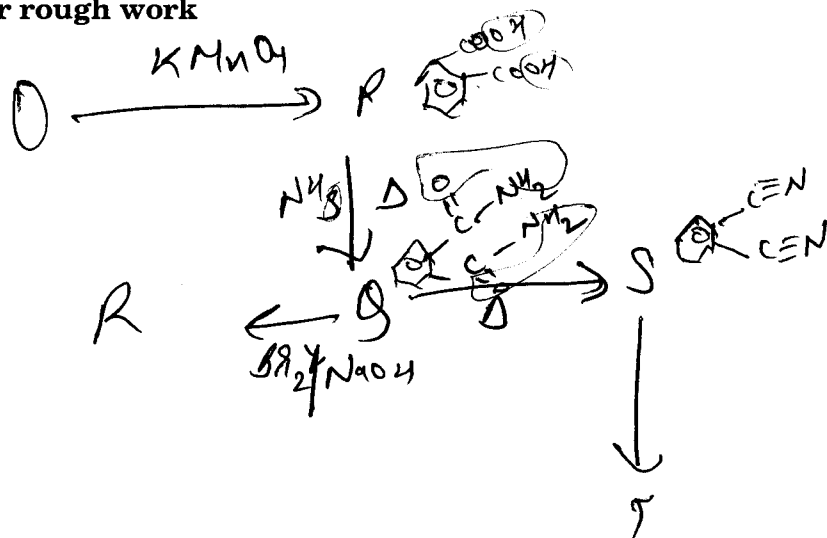 r rough work
KMnO4
COOH
P
COOH
NH3 Δ O
C NH2
C NH2
O
C≡N
C≡N
R
Q
S
Δ
Br2/NaOH
T